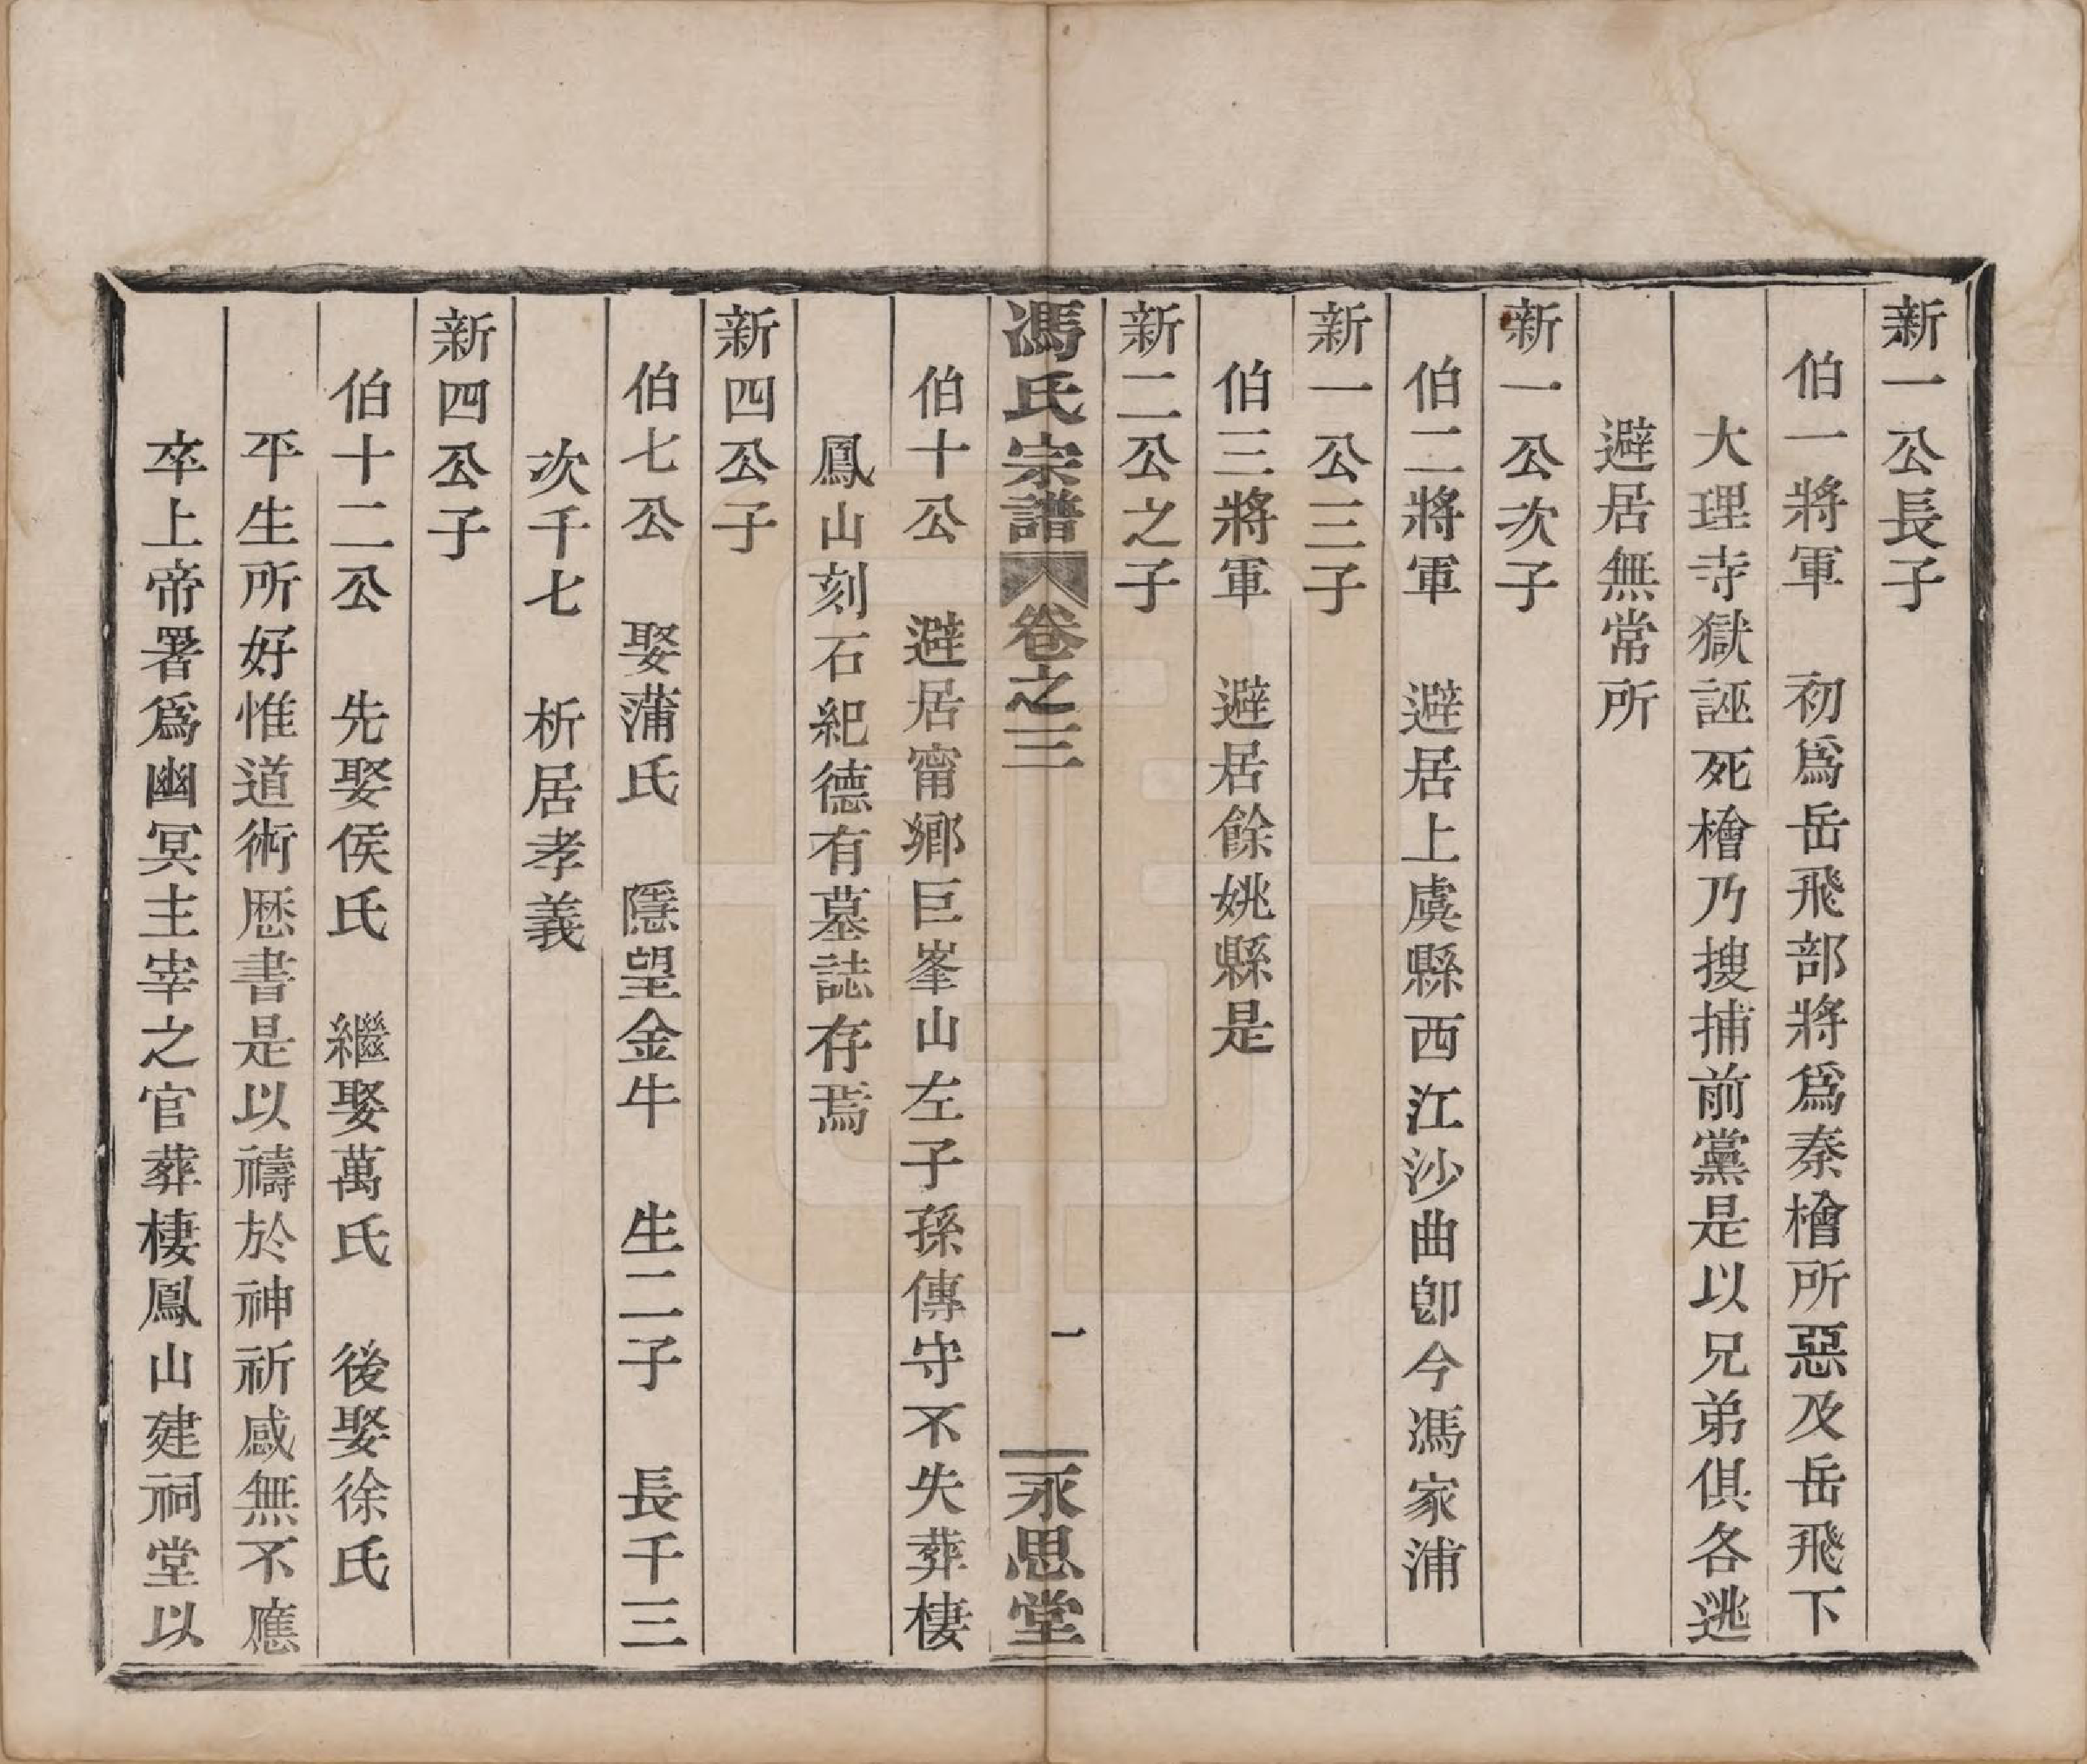 新一公長子
伯一將軍　初爲岳飛部將爲秦檜所惡及岳飛下
大理寺獄誣死檜乃搜捕前黨是以兄弟俱各逃
避居無常所
新一公次子
伯二將軍　避居上虞縣西江沙曲卽今馮家浦
新一公三子
伯三將軍　避居餘姚縣是
新二公之子
馮氏宗譜　卷之三　一　永思堂
伯十公　避居甯鄉巨峯山左子孫傳守不失葬棲
鳳山刻石紀德有墓誌存焉
新四公子
伯七公　娶蒲氏　隱望金牛　生二子　長千三
次千七　析居孝義
新四公子
伯十二公　先娶侯氏　繼娶萬氏　後娶徐氏
平生所好惟道術歷書是以禱於神祈感無不應
卒上帝署爲幽冥主宰之官葬棲鳳山建祠堂以